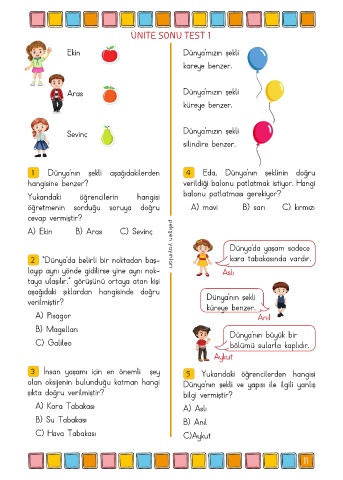 ÜNİTE SONU TEST 1
Ekin
Aras
Sevinç
1 Dünya'nın şekli aşağıdakilerden
hangisine benzer?
Yukarıdaki öğrencilerin hangisi
öğretmenin sorduğu soruya doğru
cevap vermiştir?
A) Ekin B) Aras C) Sevinç
2 "Dünya'da belirli bir noktadan baş-
layıp aynı yönde gidilirse yine aynı nok-
taya ulaşılır." görüşünü ortaya atan kişi
aşağıdaki şıklardan hangisinde doğru
verilmiştir?
A) Pisagor
B) Magellan
C) Galileo
3 İnsan yaşamı için en önemli şey
olan oksijenin bulunduğu katman hangi
şıkta doğru verilmiştir?
A) Kara Tabakası
B) Su Tabakası
C) Hava Tabakası
Dünya'mızın şekli
kareye benzer.
Dünya'mızın şekli
küreye benzer.
Dünya'mızın şekli
silindire benzer.
4 Eda, Dünya'nın şeklinin doğru
verildiği balonu patlatmak istiyor. Hangi
balonu patlatması gerekiyor?
A) mavi B) sarı C) kırmızı
Dünya'da yaşam sadece
kara tabakasında vardır.
Aslı
Dünya'nın şekli
küreye benzer.
Anıl
Dünya'nın büyük bir
bölümü sularla kaplıdır.
Aykut
5 Yukarıdaki öğrencilerden hangisi
Dünya'nın şekli ve yapısı ile ilgili yanlış
bilgi vermiştir?
A) Aslı
B) Anıl
C)Aykut
11